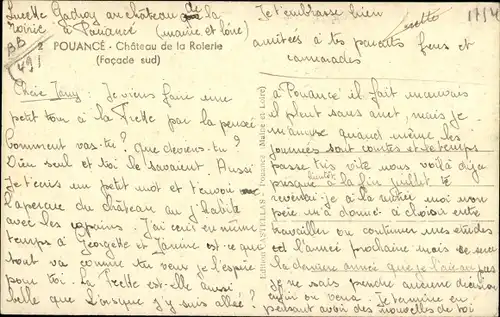 Lucette Gadroy au château de la
Noirie à Pouancé (maine et loire)
BB
(49)
2 POUANCÉ - Château de la Rolerie
(Façade sud)
Chère Jany: Je viens faire une
petit tour à la Frette par la pensée
Comment vas-tu? que deviens-tu?
Dieu seul et toi le savaient. Aussi
Je t'écris un petit mot et t'envoie
l'aperçu du château où j'habite
avec les copains. J'ai écris en même
temps à Georgette et Janine est-ce que
tout va comme tu veux je l'espère
pour toi. La Frette est-elle aussi
belle que lorsque j'y suis allée?
à Pouancé il fait mauvais
il pleut sans arret, mais je
m'amuse quand même les
journées sont courtes et le temps
passe très vite nous voilà déja
presque bientôt à la fin juillet. Je
reverrai je à la rentrée moi non
père m'a donné à choisir entre
travailler ou continuer mes études
cet l'année prochaine mais ce sera
la dernière année que je
je ne sais prendre aucune décision
enfin on verra. Je termine en
pensant avoir des nouvelles de toi
Je t'embrasse bien
amitiés à tes parents frers et
camarades
Editions d'Art
Pouancé (Maine et Loire)